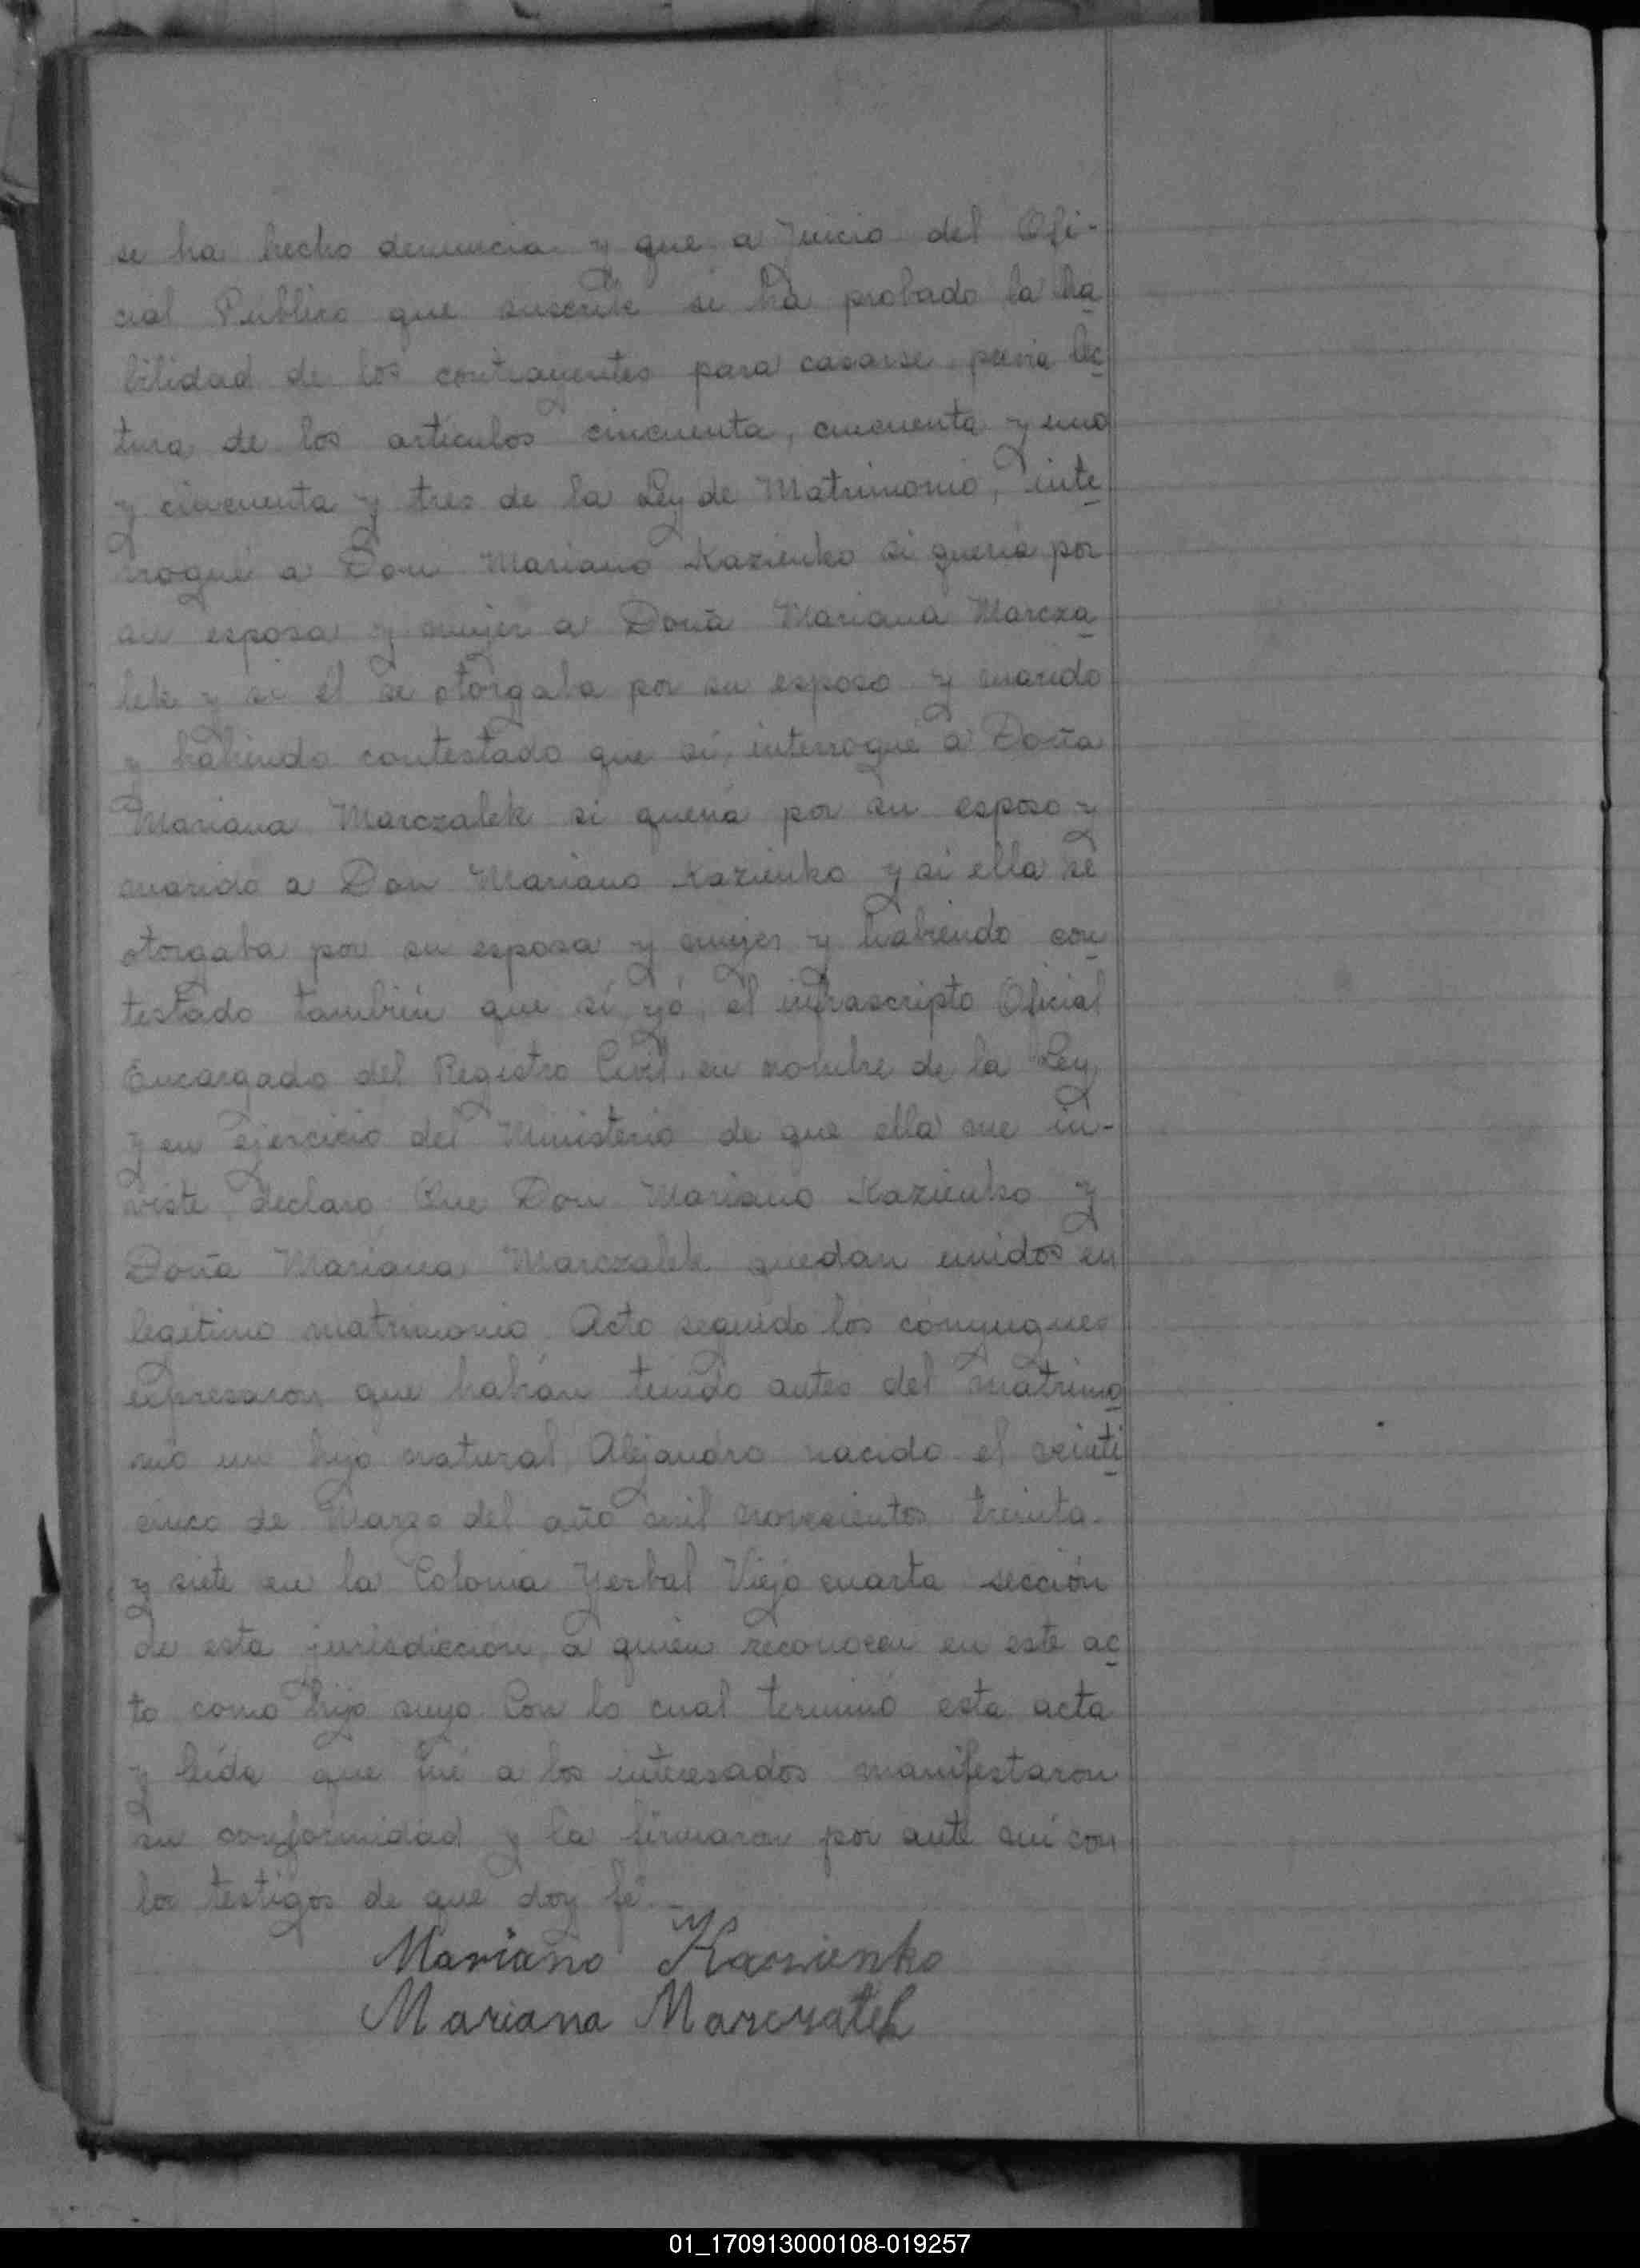 se ha hecho denuncia y que a juicio del Ofi-
cial Público que suscribe se ha probado la ha
bilidad de los contrayentes para casarse, previa lec
tura de los artículos cincuenta, cincuenta y uno
y cincuenta y tres de la Ley de Matrimonio, inte
rrogué a Don Mariano Kazienko si quería por
su esposa y mujer a Doña Mariana Marcza
lek y si él se otorgaba por su esposo y marido
y habiendo contestado que sí, interrogué a Doña
Mariana Marczalek si quería por su esposo y
marido a Don Mariano Kazienko y si ella se
otorgaba por su esposa y mujer y habiendo con
testado también que sí, yó, el infrascripto Oficial
Encargado del Registro Civil, en nombre de la Ley
y en ejercicio del Ministerio de que ella me in-
viste, declaro: Que Don Mariano Kazienko y
Doña Mariana Marczalek quedan unidos en
legítimo matrimonio. Acto seguido los conyugues
expresaron que habían tenido antes del matrimo
nio un hijo natural, Alejandro nacido el veinti
cinco de Marzo del año mil novecientos treinta
y siete en la Colonia Yerbal Viejo cuarta sección
de esta jurisdicción, a quien reconocen en este ac
to como hijo suyo. Con lo cual terminó esta acta
y leída que fué a los interesados manifestaron
su conformidad y la firmaron por ante mi con
los testigos de que doy fé.
Mariano Kazienko
Mariana Marczalek
01_170913000108-019257